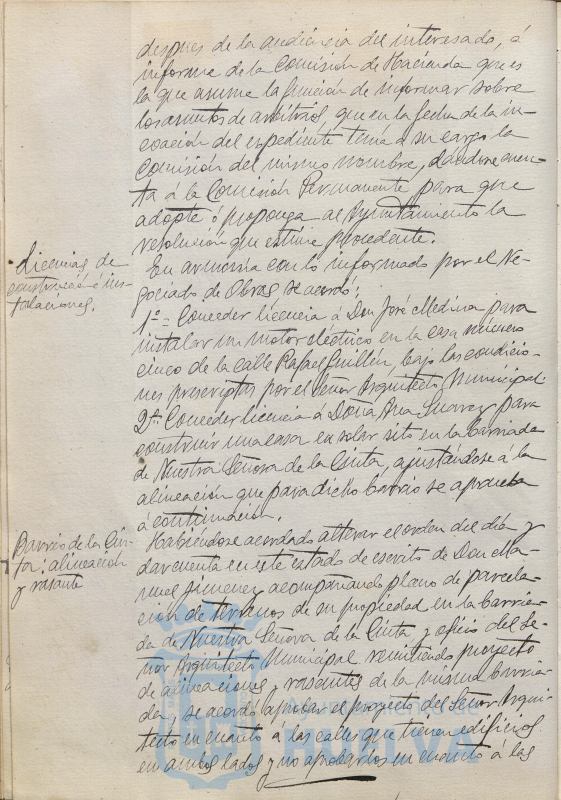 despues de la audiencia del interesado, á
informe de la Comisión de Hacienda que es
la que asume la función de informar sobre
los asuntos de arbitrios, que en la fecha de la in-
coación del expediente tenía á su cargo la
Comisión del mismo nombre, dándose cuen-
ta á la Comisión Permanente para que
adopte ó proponga al Ayuntamiento la
resolución que estime procedente.
Licencias de
construcción é ins-
talaciones.
En armonía con lo informado por el Ne-
gociado de Obras se acordó:
1º = Conceder licencia á Don José Medina para
instalar un motor eléctrico en la casa número
cinco de la calle Rafael Guillén, bajo las condicio-
nes prescriptas por el Señor Arquitecto Municipal.
2º Conceder licencia á Doña Ana Suarez para
construir una casa en solar sito en la barriada
de Nuestra Señora de la Cinta, ajustándose á la
alineación que para dicho barrio se aprueba
á continuación.
Barrio de la Cin-
ta: alineación
y rasante
Habiéndose acordado alterar el orden del día y
dar cuenta en este estado de escrito de Don Ma-
nuel Jimenez acompañando plano de parcela-
ción de terrenos de su propiedad en la barria-
da de Nuestra Señora de la Cinta y oficio del Se-
ñor Arquitecto Municipal remitiendo proyecto
de alineaciones y rasantes de la misma barria-
da, se acordó aprobar el proyecto del Señor Arqui-
tecto en cuanto á las calles que tienen edificios
en ambos lados y no aprobarlos en cuanto á las
HUELVA